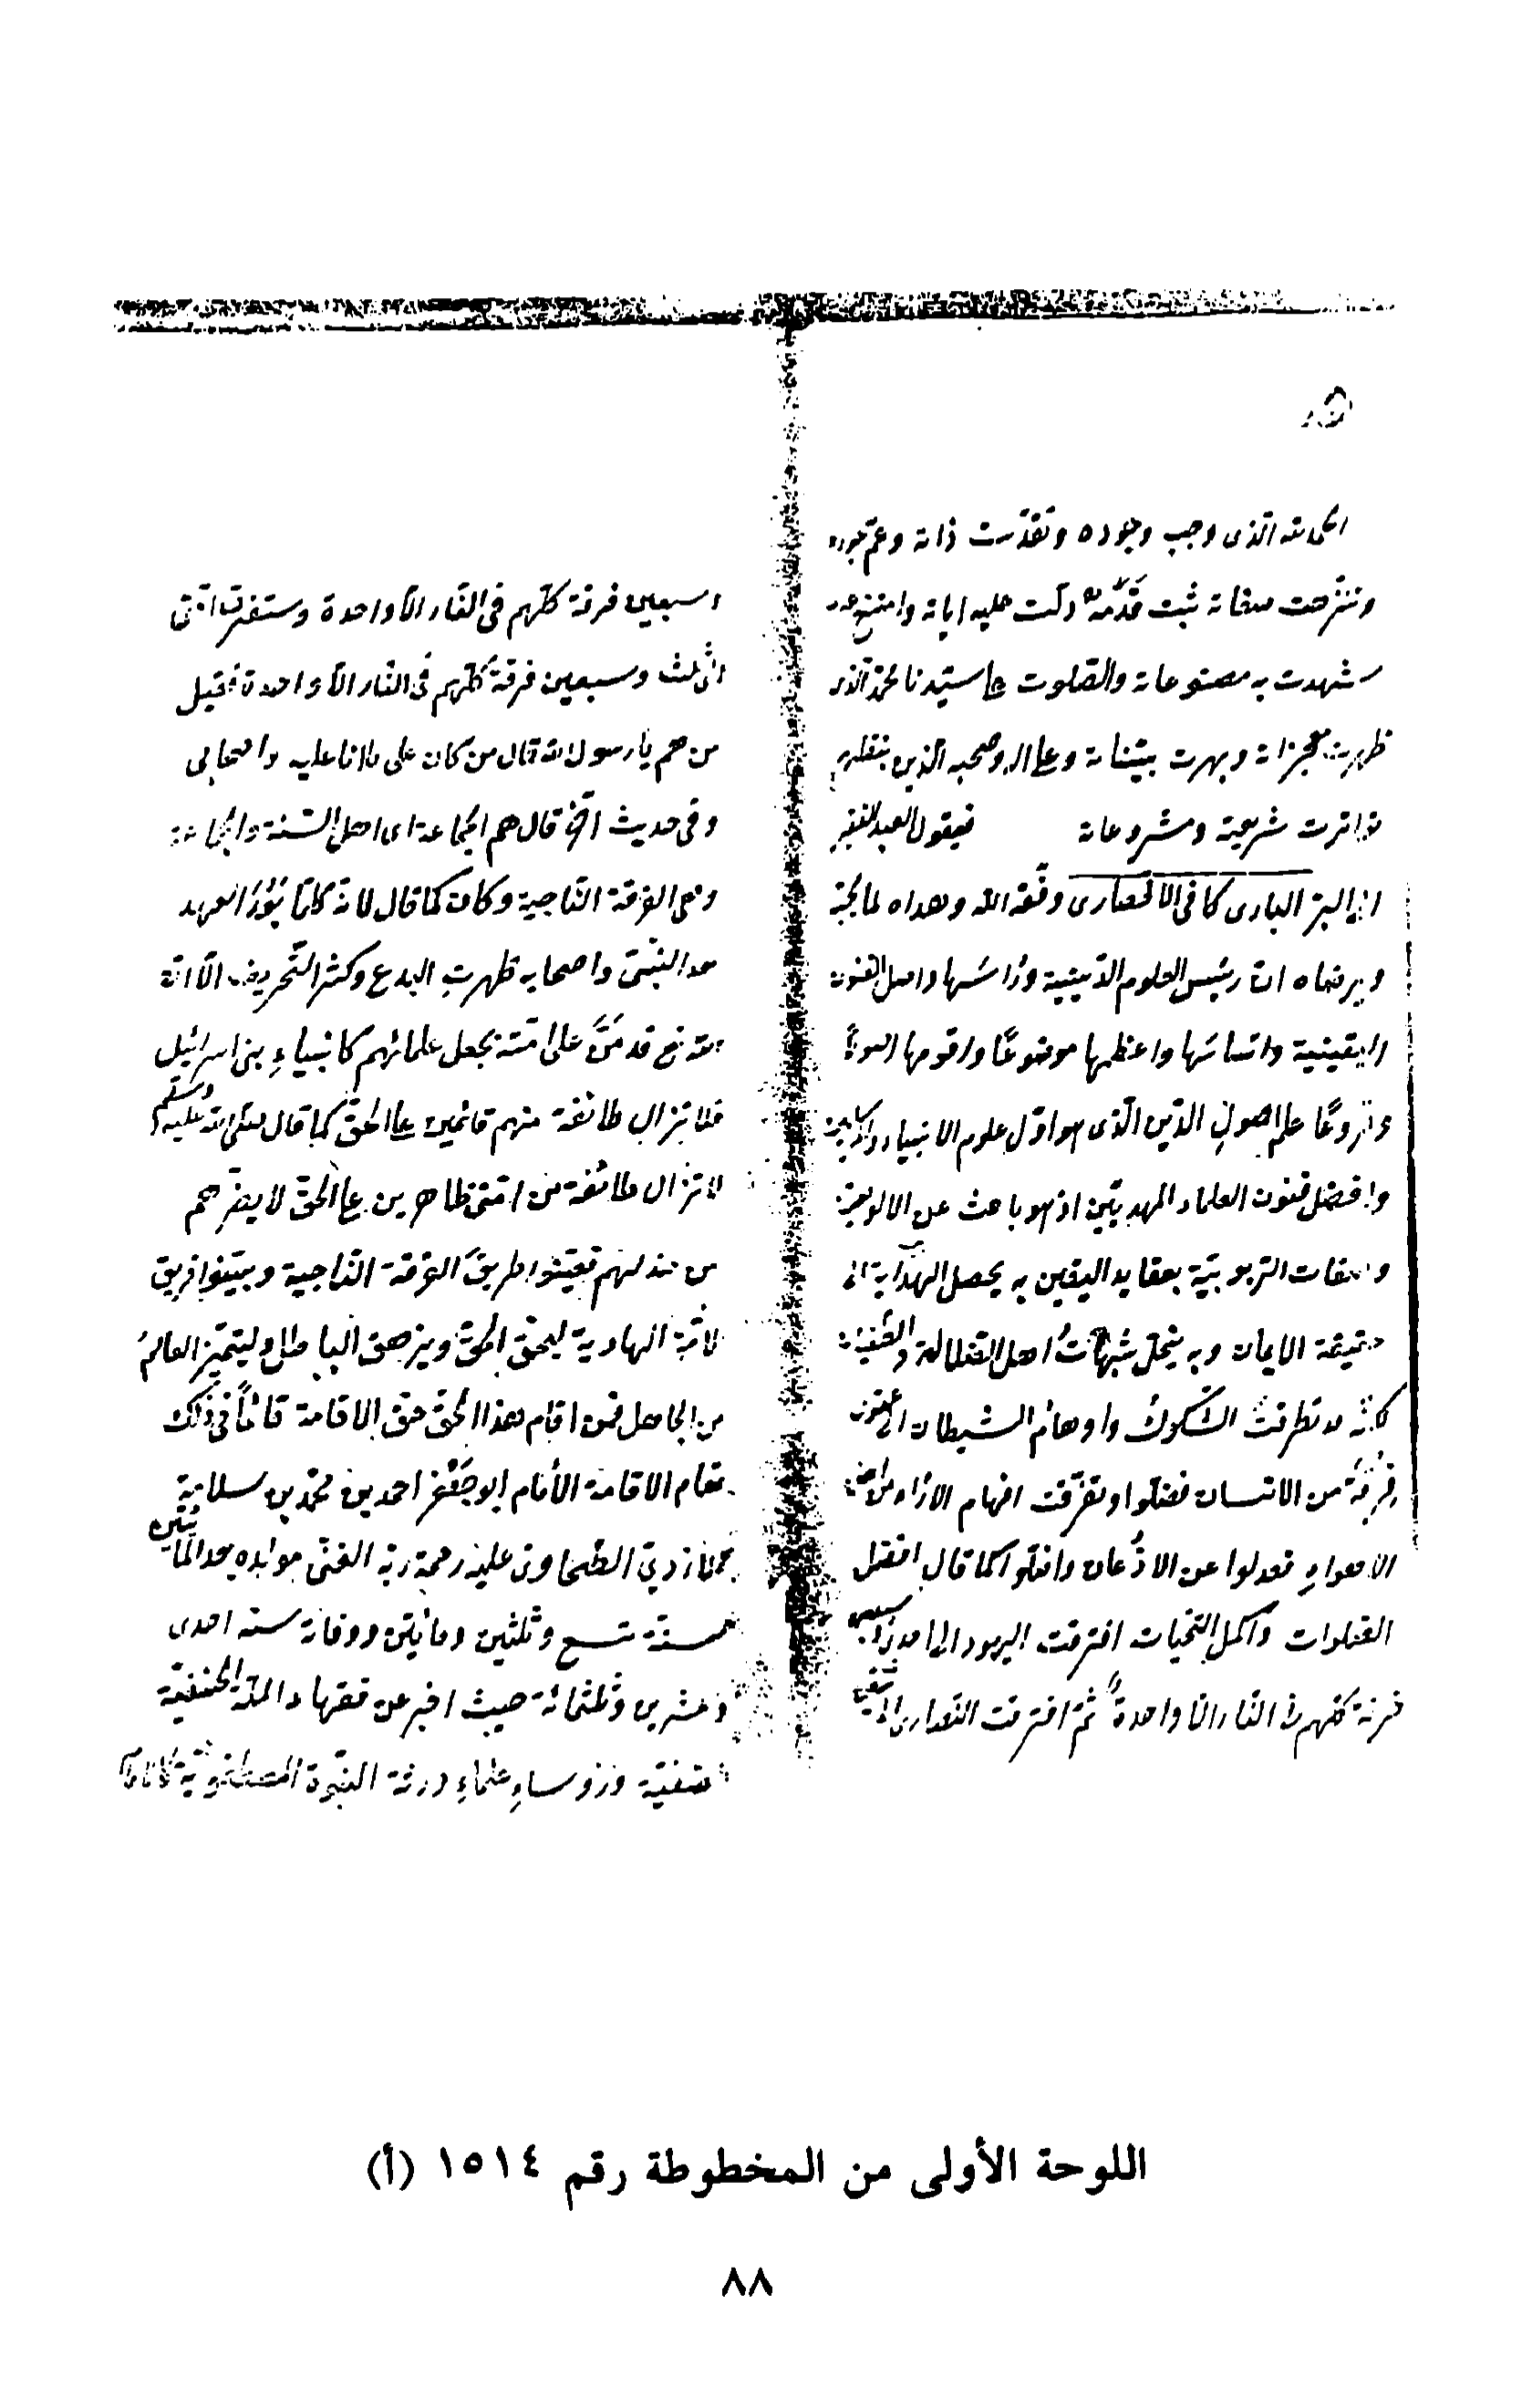 الحمد لله الذى وجب وجوده وتقدّست ذاته وعمّ جوده
وتنزهت صفاته ثبت قدمه دلّت عليه اياته وامتنع عدمه
شهدت به مصنوعاته والصّلوت على سيّدنا محمّد الّذى
ظهرت معجزاته وبهرت بيّناته وعلى اله وصحبه الذين بنقلهم
تواترت شريعته ومشروعاته فيقول العبد الفقير
الى البرّ البارى كافى الاقحصارى وفّقه الله وهداه لما يحبّه
ويرضاه انّ رئيس العلوم الدّينية ورأسها واصل الفنون
اليقينية واساسها واعظمها موضوعًا واقومها اصولاً
وفروعًا علم اصول الدّين الّذى هو اوّل علوم الانبياء والمرسلين
وافضل فنون العلماء المهديّين اذ هو باحث عن الالوهية
وصفات الرّبوبيّة بعقايد اليقين به يحصل الهداية الى
حقيقة الايمان وبه ينحلّ شبهات اهل الضلالة والطغيان
لكنّه لما تطرقت الشكوك واوهام الشيطان الى عقول
فرقة من الانسان فضلّوا وتفرّقت افهام الآراء من
الاهواء فعدلوا عن الاذعان وافتلّوا كما قال افضل
الصّلوات واكمل التّحيات افترقت اليهود الى احدى وسبعين
فرقة كلّهم فى النّار الّا واحدةً ثمّ افترقت النّصارى الى اثنتين
وسبعين فرقة كلّهم فى النّار الّا واحدة وستفترق امّتى
الى ثلث وسبعين فرقة كلّهم فى النّار الّا واحدة فقيل
من هم يا رسول الله قال من كان على ما انا عليه واصحابى
وفى حديث آخر قال هم الجماعة اى اهل السّنة والجماعة
وهى الفرقة النّاجية وكان كما قال لانه كلّما بَعُدَ العهد
بعد النّبىّ واصحابه ظهرت البدع وكثر التّحريف الّا انّ
الله تع قد مَنَّ على امّته بجعل علمائهم كانبياءِ بنى اسرائيل
فلا تزال طائفة منهم قائمين على الحقّ كما قال صلى الله عليه وسلم
لا تزال طائفة من امّتى ظاهرين على الحقّ لا يضرّهم
من خذلهم فعيّنوا طريقَ الفرقة النّاجية وبيّنوا فريق
الامّة الهادية ليحقّ الحقّ ويزهق الباطل وليتميّز العالمُ
من الجاهل فمن اقام هذا الحقّ حقّ الاقامة قائماً فى ذلك
مقام الاقامة الأمام ابو جَعْفَر احمد بن محمّد بن سلامة
الازديّ الطّحاوى عليه رحمة ربّه الغنىّ مولده بعد المأتين
سنة تسع وثلثين ومائتين ووفاته سنة احدى
وعشرين وثلثمائة حيث اخبر عن فقهاء الملّة الحنفيّة
الحنفيّة ورؤساءِ علماءِ ورثة النبّوة المصطفويّة
اللوحة الأولى من المخطوطة رقم ١٥١٤ (أ)
٨٨